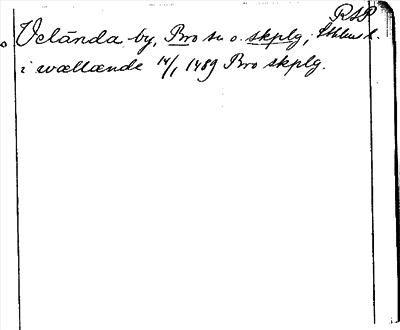 RSP
Velända by, Bro sn o. skplg, Sthlms l.
i wællænde 14/1 1489 Bro skplg.